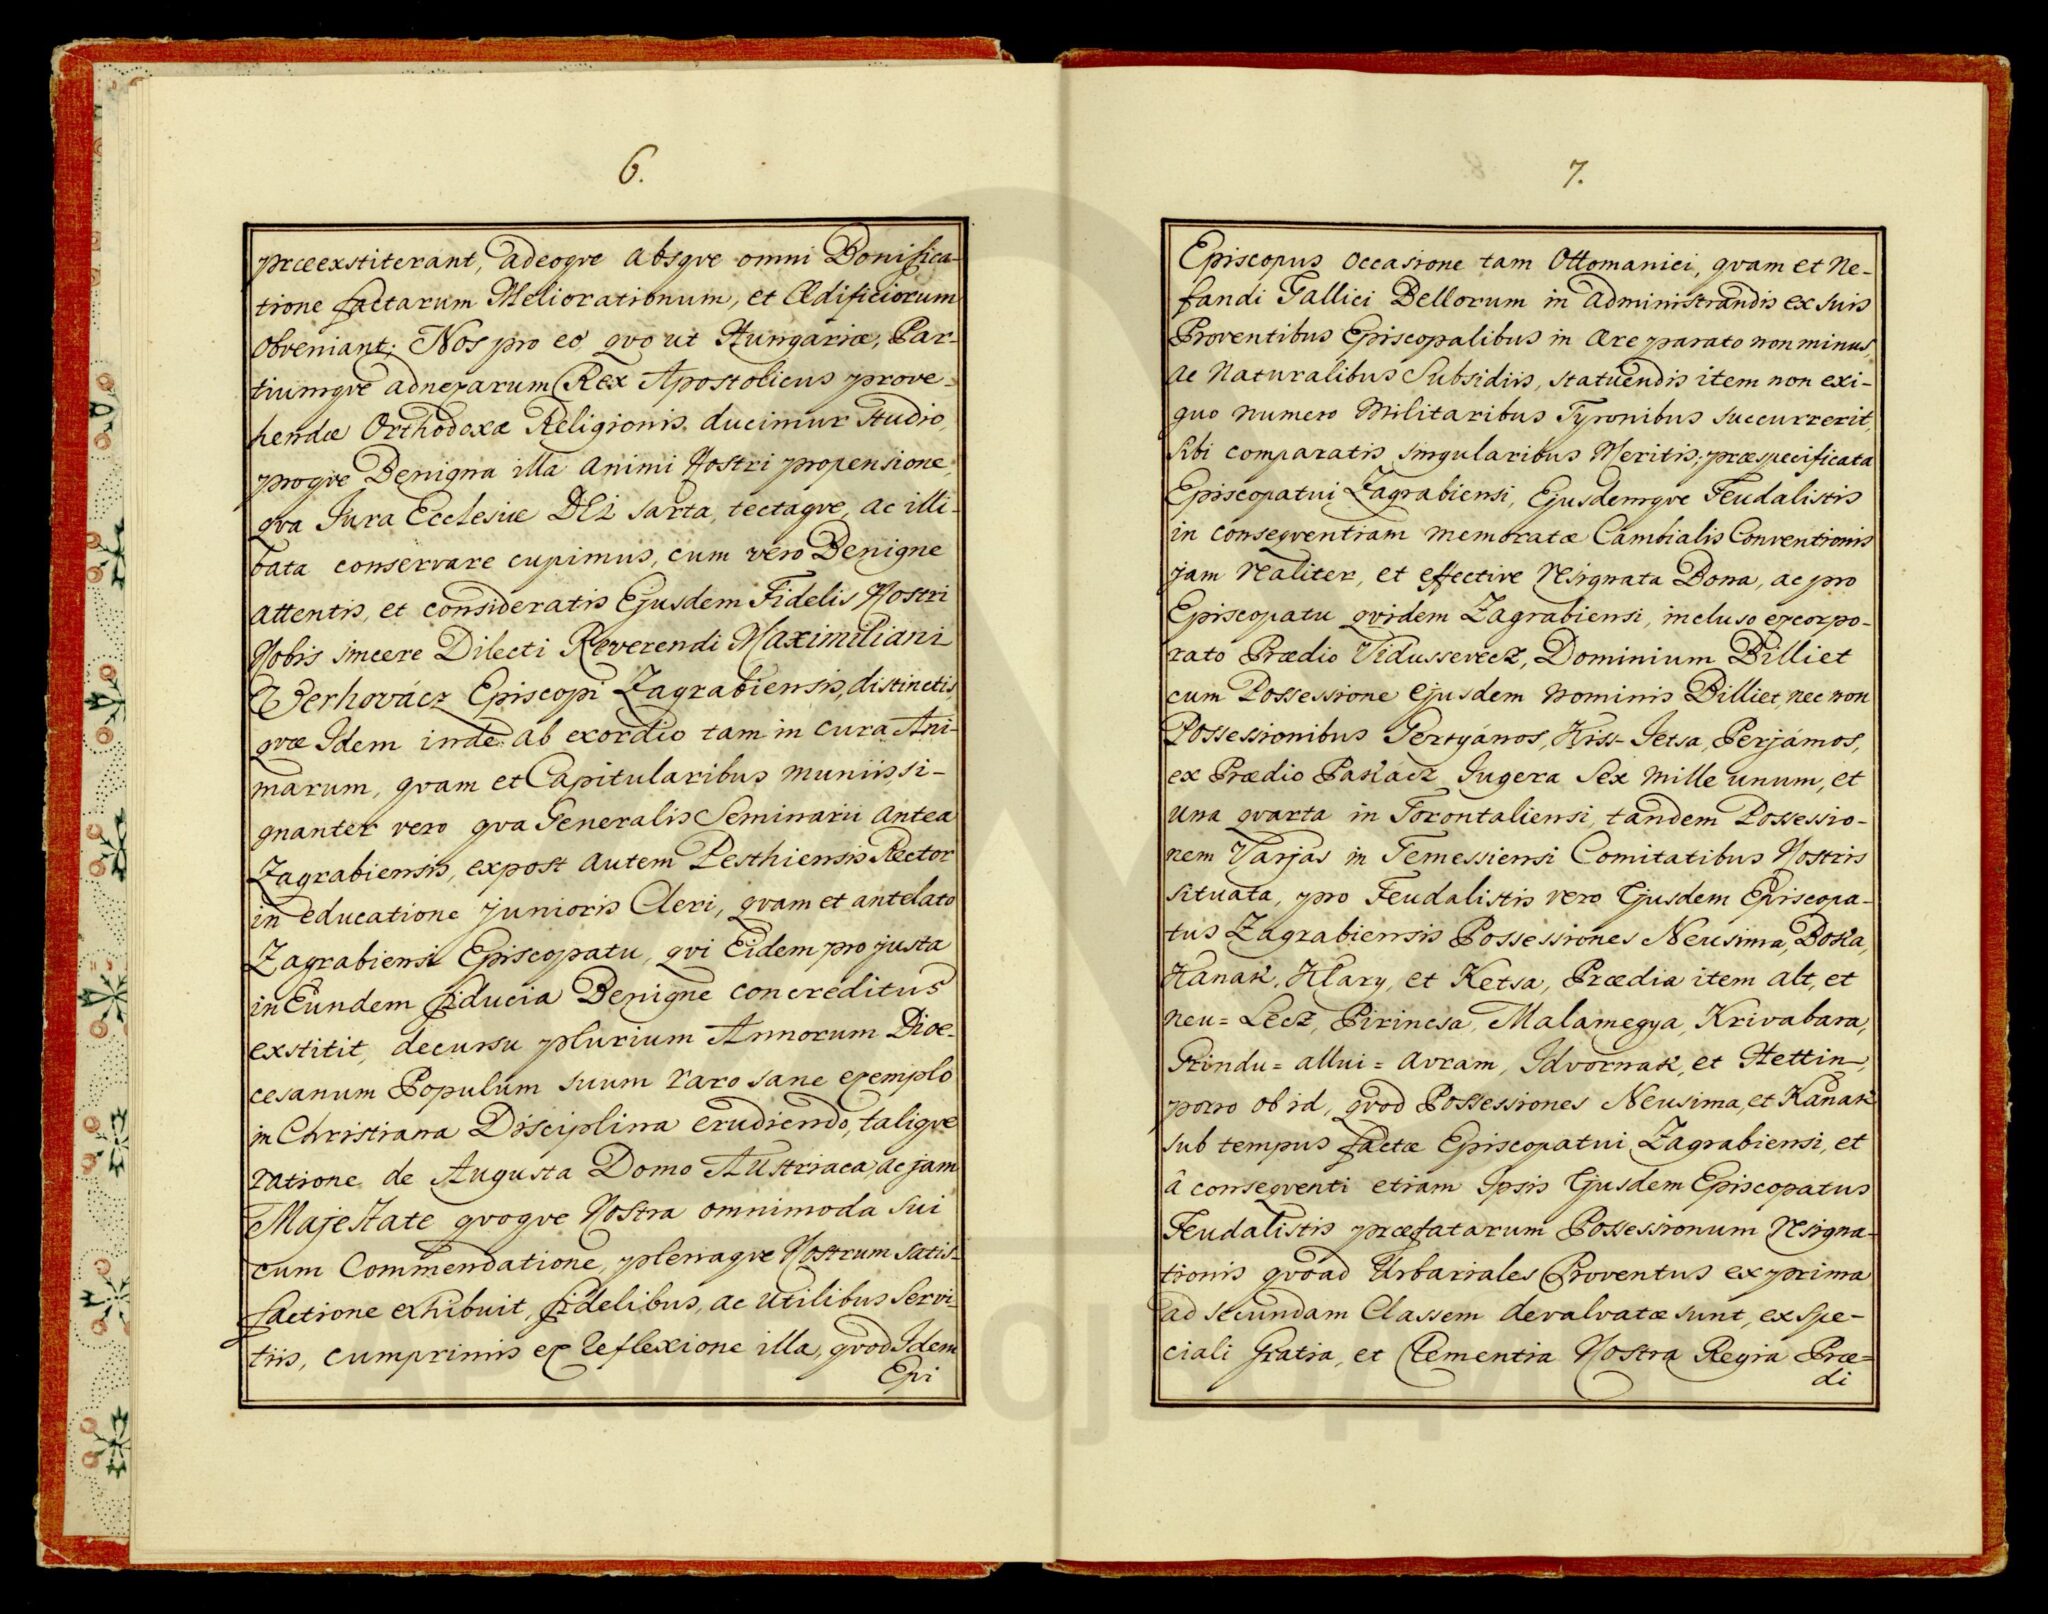 6.
præexstiterant, adeoqve absqve omni Bonifica-
tione factarum Meliorationum, et Ædificiorum
obveniant; Nos pro eo, qvo ut Hungariæ, Par-
tiumqve adnexarum Rex Apostolicus prove-
hendæ Orthodoxæ Religionis ducimur Studio,
proqve Benigna illa Animi Nostri propensione,
qva Jura Ecclesiæ DEI sarta, tectaqve, ac illi-
bata conservare cupimus, cum vero Benigne
attentis, et consideratis Ejusdem Fidelis Nostri
Nobis sincere Dilecti Reverendi Maximiliani
Verhovácz Episcopi Zagrabiensis, distinctis,
qvæ Idem inde ab exordio tam in cura Ani-
marum, qvam et Capitularibus muniis, si-
gnanter vero qva Generalis Seminarii antea
Zagrabiensis, expost autem Pesthiensis Rector
in educatione junioris Cleri, qvam et antelato
Zagrabiensi Episcopatu, qvi Eidem pro justa
in Eundem fiducia Benigne concreditus
exstitit, decursu plurium Annorum Dioe-
cesanum Populum suum raro sane exemplo
in Christiana Disciplina erudiendo, taliqve
ratione de Augusta Domo Austriaca, ac jam
Majestate qvoqve Nostra omnimoda sui
cum Commendatione, plenaqve Nostrum satis-
factione exhibuit, fidelibus, ac utilibus Servi-
tiis, cumprimis ex reflexione illa, qvod Idem
Epi
7.
Episcopus occasione tam Ottomanici, qvam et Ne-
fandi Gallici Bellorum in administrandis ex suis
Proventibus Episcopalibus in Ære parato non minus,
ac Naturalibus Subsidiis, statuendis item non exi-
guo numero Militaribus Tyronibus succurrerit,
sibi comparatis singularibus Meritis; præspecificata
Episcopatui Zagrabiensi, Ejusdemqve Feudalistis
in conseqventiam memoratæ Cambialis Conventionis
jam realiter, et effective resignata Bona, ac pro
Episcopatu qvidem Zagrabiensi, incluso excorpo-
rato Prædio Vidussevecz, Dominium Billiet
cum Possessione ejusdem nominis Billiet, nec non
Possessionibus Gertyános, Kiss-Jetsa, Perjámos,
ex Prædio Paskácz Jugera Sex mille unum, et
una qvarta in Torontaliensi, tandem Possessio-
nem Varjás in Temessiensi Comitatibus Nostris
situata, pro Feudalistis vero Ejusdem Episcopa-
tus Zagrabiensis Possessiones Neusima, Boka,
Kanak, Klary, et Ketsa, Prædia item alt, et
neu=Lecz, Pirincsa, Malamegya, Krivabara,
Rindu=allui=Avram, Idvornak, et Hettin,
porro ob id, qvod Possessiones Neusima, et Kanak
sub tempus factæ Episcopatui Zagrabiensi, et
â conseqventi etiam Ipsis Ejusdem Episcopatus
Feudalistis præfatarum Possessionum resigna-
tionis qvoad Urbariales Proventus ex prima
ad secundam Classem devalvatæ sunt, ex spe-
ciali Gratia, et Clementia Nostra Regia Præ=
di